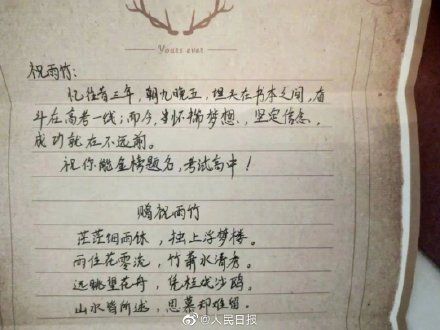 Yours ever
祝雨竹:
忆往昔三年,朝九晚五,埋头在书本之间,奋
斗在高考一线;而今,坐怀揣梦想、坚定信念,
成功就在不远前。
祝你能金榜题名,考试高中!
赠祝雨竹
茫茫烟雨休,独上浮梦楼。
雨住花零流,竹萧水清秀。
远眺望花舟,凭栏戏沙鸥。
山水皆所述,思慕却难留。
@人民日报